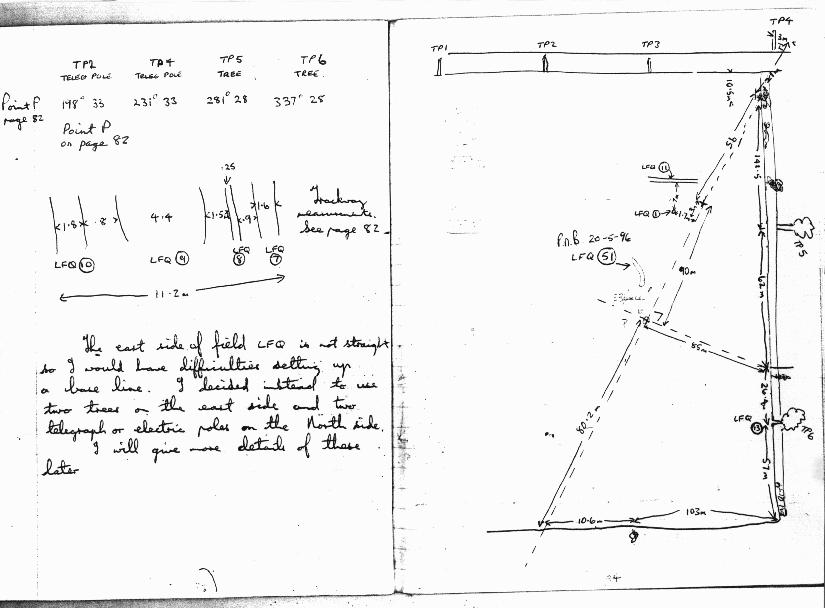 TP2 TP4 TP5 TP6
TELEG POLE TELEG POLE TREE TREE
Point P 198° 33 231° 33 281° 28 337° 25
page 82
Point P
on page 82
.25
1.8 .8 4.4 1.53 .9 1.6
Trackway
measurements.
See page 82
LFQ 10 LFQ 9 LFQ 8 LFQ 7
11.2m
The east side of field LFQ is not straight
so I would have difficulties setting up
a base line. I decided instead to use
two trees on the east side and two
telegraph or electric poles on the North side.
I will give more details of these
later
TP4
3m
TP1 TP2 TP3
10.5m
95
141.5
LFQ 11
LFQ
1.2
TP5
P.n.B 20-5-96
LFQ 51
90m
62m
85m
26.4m
LFQ
TP6
80.2m
57m
10.6m 103m
84